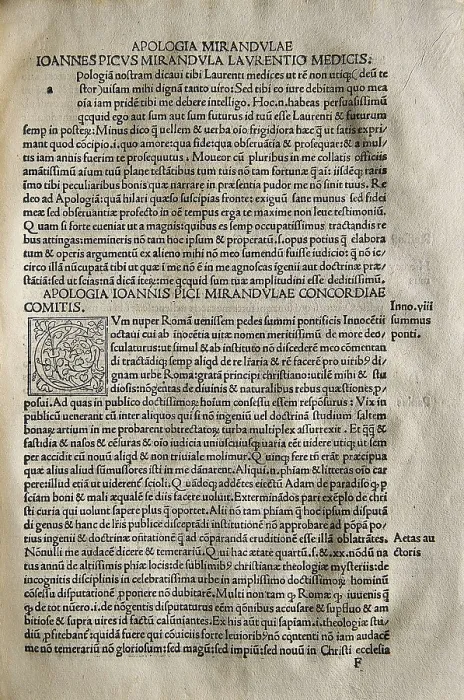 APOLOGIA MIRANDVLAE
IOANNES PICVS MIRANDVLA LAVRENTIO MEDICIS:
Pologiā nostram dicaui tibi Laurenti medices ut rē non utiq; (deū te
a stor) usam mihi dignā tanto uiro: Sed tibi eo iure debitam quo mea
oīa iam pridē tibi me debere intelligo. Hoc.n.habeas persuasissimū
qcquid ego aut sum aut sum futurus id tuū esse Laurenti & futurum
semp in poster. Minus dico q̄ uellem & uerba oīo frigidiora hæc q̄ ut satis expri/
mant quod cōcipio.i.quo amore: qua fide: qua obseruātia & prosequar: & a mul/
tis iam annis fuerim te prosequutus. Moueor cū pluribus in me collatis officiis
amātissimū aīum tuū plane testātibus tum tuis nō tam fortunæ q̄ aī: iisdēq; raris
īmo tibi peculiaribus bonis quæ narrare in præsentia pudor me nō sinit tuus. Re
deo ad Apologiā: quā hilari quæso suscipias fronte: exiguū sane munus sed fidei
meæ sed obseruantiæ profecto in oē tempus erga te maxime non leue testimoniū.
Quam si forte eueniat ut a magnis: quibus es semp occupatissimus tractandis re
bus attingas: memineris nō tam hoc ipsum & properatū.s.opus potius q̄ elabora
tum & operis argumentū ex alieno mihi nō meo sumendū fuisse iudicio: q̄ nō ic/
circo illā nūcupatā tibi ut quæ i me nō ē in me agnoscas igenii aut doctrinæ præ/
stātiā: sed ut scias: tnā dicā ite; me: qcquid sum tuæ amplitudini esse deditissimū.
APOLOGIA IOANNIS PICI MIRANDVLAE CONCORDIAE
COMITIS.
Inno.viii
summus
ponti.
Vm nuper Romā uenissem pedes summi pontificis Innocētii
octaui cui ab īnocētia uitæ nomen meritissimū de more deo/
sculaturus: ut simul & ab instituto nō discederē meo cōmentan
di tractādiq; semp aliqd de re lraria & rē facerē pro uirib9 di/
gnam urbe Roma: gratā principi christiano: utilē mihi & stu
diosis: nōgentas de diuinis & naturalibus rebus quæstiones p/
posui. Ad quas in publico doctissimor hoīum consessu essem respōsurus: Vix in
publicū uenerant cū inter aliquos: qui si nō ingeniū uel doctrinā studium saltem
bonar artium in me probarent obtrectator turba multiplex assurrexit. Et q̄q̄ &
fastidia & nasos & cēsuras & oīo iudicia uniuscuiusq; uaria eēt uidere utiq; ut sem
per accidit cū nouū aliqd & non triuiale molimur. Quinq; fere tn̄ erāt præcipua
quæ alius aliud sumussores isti in me dānarent. Aliqui.n.phīam & litteras oīo car
pere: illud etiā ut uiderent scioli. Quādoq; addētes eiectū Adam de paradiso q; p
sciam boni & mali æqualē se diis facere uoluit. Exterminādos pari exēplo de chri
sti curia qui uolunt sapere plus q̄ oportet. Alii nō tam phiam q̄ hoc ipsum disputā
di genus & hanc de lris publice disceptādi institutionē nō approbare ad pōpā po/
tius ingenii & doctrinæ oñtationē q̄ ad cōparandā eruditionē esse illā oblatrātes.
Aetas au
ctoris
Nōnulli me audacē dicere & temerariū. Qui hac ætate quartū.s.&.xx.nōdū na
tus annū de altissimis phīæ locis: de sublimib9 christianæ theologiæ mysteriis: de
incognitis disciplinis in celebratissima urbe in amplissimo doctissimor hominū
cōsessu disputationē pponere nō dubitarē. Multi non tam q; Romæ q; iuuenis q;
q; de tot nūero.i.de nōgentis disputaturus eēm qōnibus accusare & supfluo & am
bitiose & supra uires id factū calūniantes. Ex his aūt qui sapīam.i.theologiæ stu/
diū pfitebant: quidā fuere qui cōuiciis forte leuiorib9 nō cōtenti nō iam audacē
me nō temerariū nō gloriosum: sed magū: sed impiū: sed nouū in Christi ecclesia
F